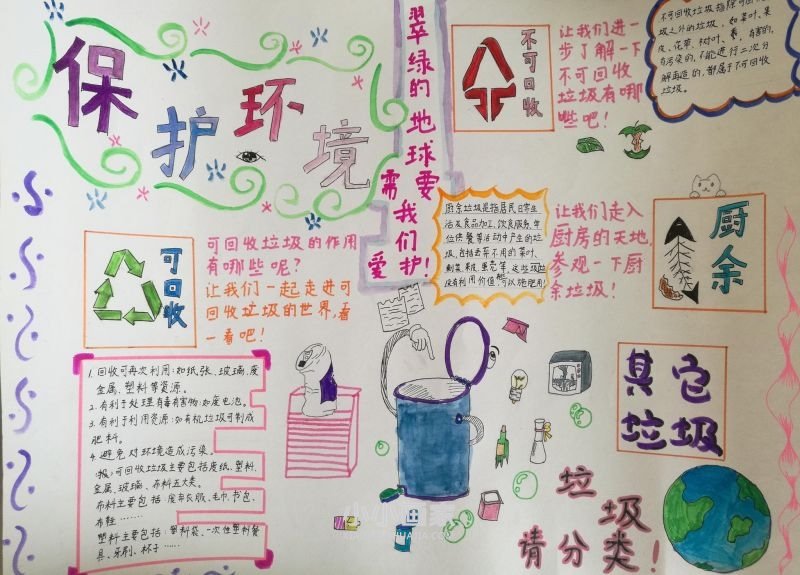 保护环境
翠绿的地球要
需我们
爱护!
不可回收
让我们进一
步了解一下
不可回收
垃圾有哪
些吧!
不可回收垃圾指除可回收垃
圾之外的垃圾,如菜叶、果
皮、花草、树叶、
有污染的,不能进行二次分
解再造的,都属于不可回收
垃圾。
可回收
可回收垃圾的作用
有哪些呢?
让我们一起走进可
回收垃圾的世界,看
一看吧!
厨余垃圾是指居民日常生
活及食品加工、饮食服务、单
位供餐等活动中产生的垃
圾,包括丢弃不用的菜叶、
剩菜、果皮、蛋壳等,这些垃圾
没有利用价值,可以施肥用!
让我们走入
厨房的天地,
参观一下厨
余垃圾!
厨余
1. 回收可再次利用:如纸张、玻璃、废
金属、塑料等资源。
2. 有利于处理有毒有害物:如废电池。
3. 有利于利用资源:如有机垃圾可制成
肥料。
4. 避免对环境造成污染。
可回收垃圾主要包括废纸、塑料、
金属、玻璃、布料五大类。
布料主要包括:废弃衣服、毛巾、书包、
布鞋……
塑料主要包括:塑料袋、一次性塑料餐
具、牙刷、杯子……
其它
垃圾
垃圾
请分类!
小小画家